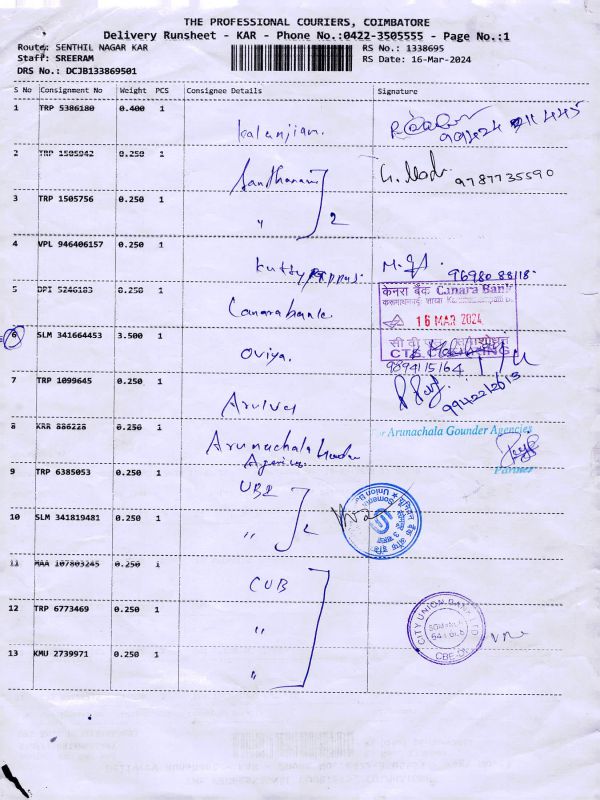 THE PROFESSIONAL COURIERS, COIMBATORE
Delivery Runsheet - KAR - Phone No.:0422-3505555 - Page No.:1
Route: SENTHIL NAGAR KAR
RS No.: 1338695
Staff: SREERAM
RS Date: 16-Mar-2024
DRS No.: DCJB133869501
S No Consignment No Weight PCS Consignee Details Signature
1 TRP 5386180 0.400 1 Kalanjiam.
2 TRP 1505942 0.250 1 9787735590
3 TRP 1505756 0.250 1 " 2
4 VPL 946406157 0.250 1 96980 88118
केनरा बैंक Canara Bank
5 DPI 5246183 0.250 1 Canara bank
16 MAR 2024
6 SLM 341664453 3.500 1 Oviya.
CTS CLEARING
9894115164
7 TRP 1099645 0.250 1
8 KRR 886228 0.250 1 Arunachala
For Arunachala Gounder Agencies
Partner
9 TRP 6385053 0.250 1 UBI
10 SLM 341819481 0.250 1 " 2
11 MAA 107803245 0.250 1 CUB
12 TRP 6773469 0.250 1 "
CITY UNION BANK LTD
13 KMU 2739971 0.250 1 "